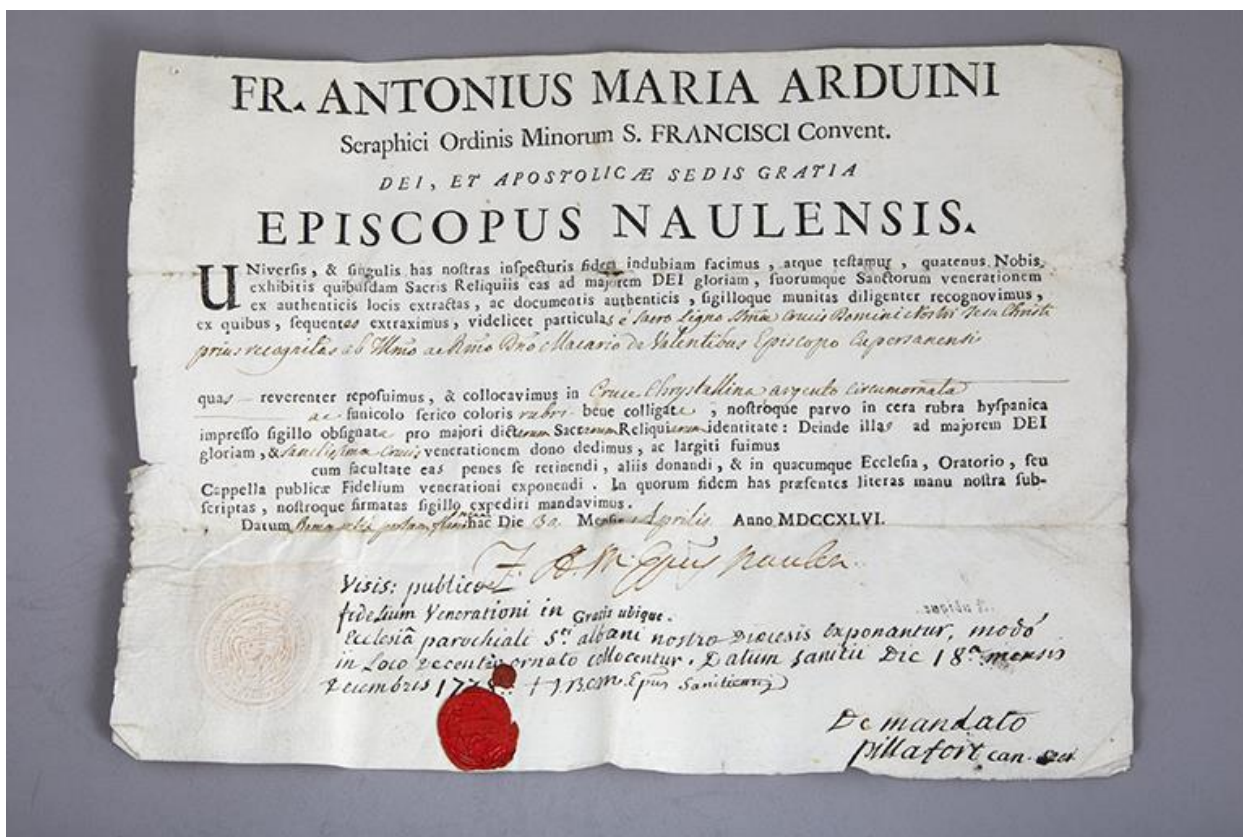 FR. ANTONIUS MARIA ARDUINI
Seraphici Ordinis Minorum S. FRANCISCI Convent.
DEI, ET APOSTOLICÆ SEDIS GRATIA
EPISCOPUS NAULENSIS.
UNiverſis, & ſingulis has noſtras inſpecturis fidem indubiam facimus, atque teſtamur, quatenus Nobis
exhibitis quibuſdam Sacris Reliquiis eas ad majorem DEI gloriam, ſuorumque Sanctorum venerationem
ex authenticis locis extractas, ac documentis authenticis, ſigilloque munitas diligenter recognovimus,
ex quibus, ſequentes extraximus, videlicet particulas è Sacro Ligno Crucis Domini Nostri Jesu Christi
prius recognitas ab Illmo ac Rmo Dno Macario de Valentibus Episcopo
quas reverenter repoſuimus, & collocavimus in Cruce Chrystallina argento circumornata
ac funicolo ſerico coloris rubri bene colligata, noſtroque parvo in cera rubra hyſpanica
impreſſo ſigillo obſignata pro majori dictarum Sacrarum Reliquiarum identitate: Deinde illas ad majorem DEI
gloriam, & Sanctissimæ Crucis venerationem dono dedimus, ac largiti fuimus
cum facultate eas penes ſe retinendi, aliis donandi, & in quacumque Eccleſia, Oratorio, ſeu
Cappella publicæ Fidelium venerationi exponendi. In quorum fidem has præſentes literas manu noſtra ſub-
ſcriptas, noſtroque firmatas ſigillo expediri mandavimus.
Datum hac Die Menſis Aprilis Anno MDCCXLVI.
F. A. M. Epus Naulen
Visis: publicæ
fidelium Venerationi in
Gratis ubique.
Ecclesiâ parochiali Sti albani nostræ Diœcesis Exponantur, modó
in Loco decenter ornato collocentur. Datum Sanitii Die 18â mensis
Decembris Epus
De mandato
pillafort can.